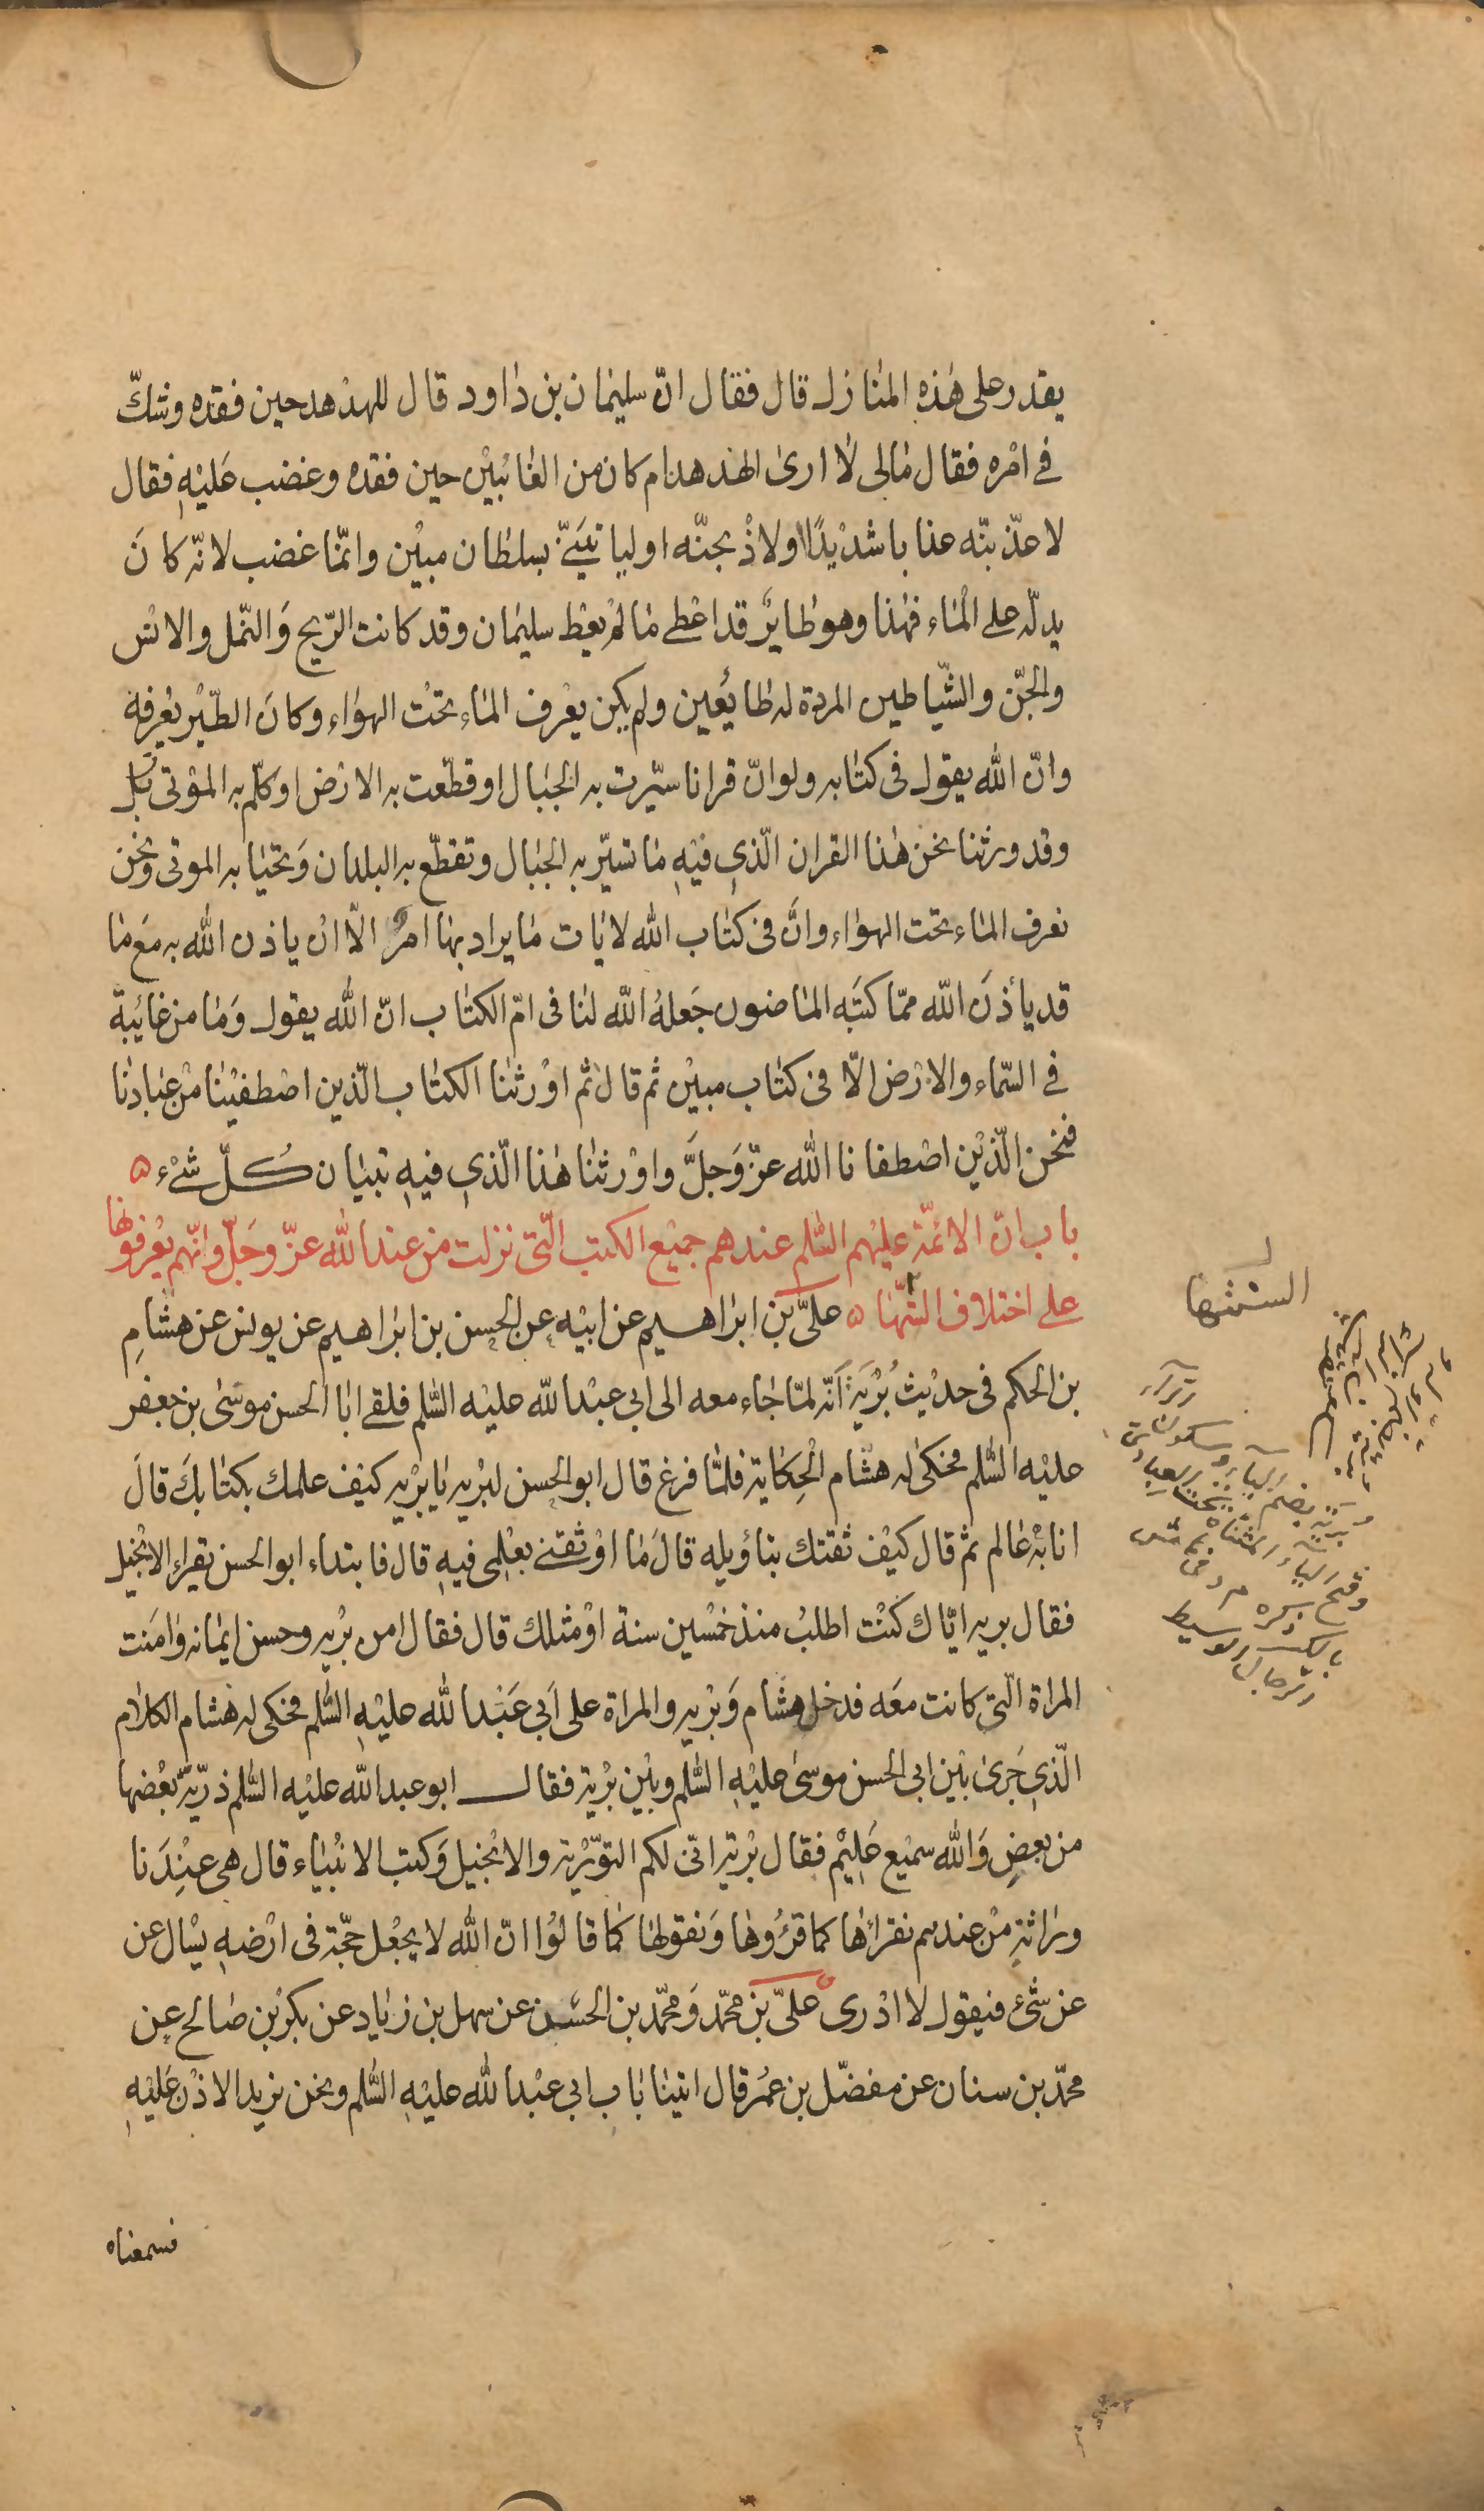 يقدر على هٰذه المنازل قال فقال انّ سليمان بن داود قال للهدهد حين فقده وشكّ
في امره فقال مالى لا ارى الهدهد ام كان من الغائبين حين فقده وغضب عليه فقال
لاعذّبنّه عذابا شديدًا اولاذبحنّه اوليا تيَنّى بسلطان مبين وانمّا غضب لانّه كانَ
يدلّه على الماء فهذا وهو طايرٌ قد اعطى ما لم يعط سليمان وقد كانت الرّيح وَالنّمل والانس
والجّن والشّياطين المردة له طايُعين ولم يكن يعرف الماء تحت الهواء وكانَ الطّير يعرفه
وانّ الله يقول فى كتابه ولو انّ قرانا سيّرت به الجبال او قطّعت به الارض او كلّم به الموتى بل
وقد ورثنا نحن هٰذا القران الّذى فيه ما تسيّر به الجبال وتقطّع به البلدان وَتحيا به الموتى ونحن
نعرف الماء تحت الهواء وانَّ فى كتاب الله لايات ما يراد بها امرٌ الّا ان ياذن الله به مَع ما
قد يأذنَ الله ممّا كتبَه الماضون جَعلهُ الله لنا فى امّ الكتاب انّ الله يقول وَما من غايَبة
في السّماء والارض الّا فى كتاب مبين ثم قال ثم اورثنا الكتاب الّذين اصطفينا من عبادنا
فنحن الّذين اصطفانا الله عزّ وَجلَّ واورثنا هذا الّذى فيه تبيان كُلّ شىْء ۵
باب انّ الائمّة عليهم السّلم عندهم جميع الكتب الّتى نزلت من عند الله عزّ وجَلّ وانّهم يعرفونها
على اختلاف السنتها ۵ علىّ بن ابراهيم عن ابيه عن الحسن بن ابراهيم عن يونس عن هشامِ
بن الحكم فى حديث بُرَيَة اَنّه لمّا جاء معه الى ابى عبد الله عليه السّلم فلقى ابا الحسن موسى بن جعفر
عليه السّلم فحكى له هشام الحِكاية فلمّا فرغ قال ابو الحسن لبريه يا بريه كيف علمك بكتابكَ قالَ
انا به عالم ثم قال كيف ثقتك بتاؤيله قالَ ما اوثقنى بعلمى فيه قال فابتداء ابو الحسن يقراء الانجيل
فقال بريه ايّاك كنت اطلبُ منذ خمسين سنة او مثلك قال فقال امن بريه وحسن ايمانه وامَنت
المراة الّتى كانت معَه فدخل هشام وَبريه والمراة على اَبى عَبد الله عليه السّلم فحكى له هشام الكلام
الّذى جَرى بين ابى الحسن موسى عليه السّلم وبين بريه فقال ابو عبد الله عليه السّلم ذريّة بعضها
من بعضٍ وَالله سميع عليم فقال بريه انّى لكم التّوريٰة والانجيل وَكتب الانبياء قال هى عِندَنا
وراثةٍ من عندهم نقراءها كما قرؤوها وَنقولها كما قالوا انّ الله لا يجعل حجّة فى ارضه يسال عن
عن شئ فيقول لا ادرى علىّ بن محمّد وَمحمّد بن الحسن عن سهل بن زياد عن بكر بن صالح عن
محمّد بن سنان عن مفضّل بن عمُر قال اتينا باب ابى عبد الله عليه السّلم ونحن نريد الاذن عَليه
فسمعناه
السنتها